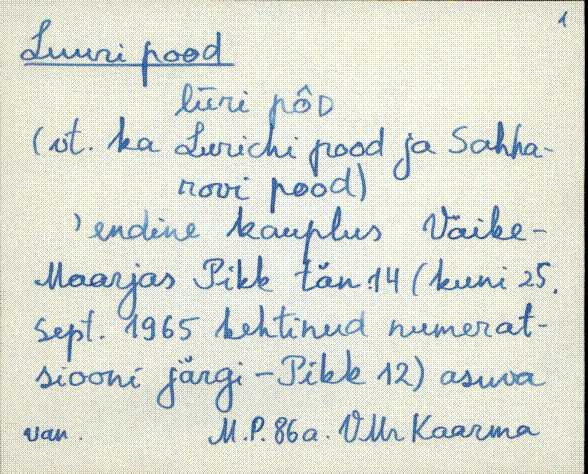 1
Luuri pood
lūri pôᴅ
(vt. ka Lurichi pood ja Sahha-
rovi pood)
’endine kauplus Väike-
Maarjas Pikk tän. 14 (kuni 25.
sept. 1965 kehtinud numerat-
siooni järgi – Pikk 12) asuva
van. M.P. 86a. VMr Kaarma